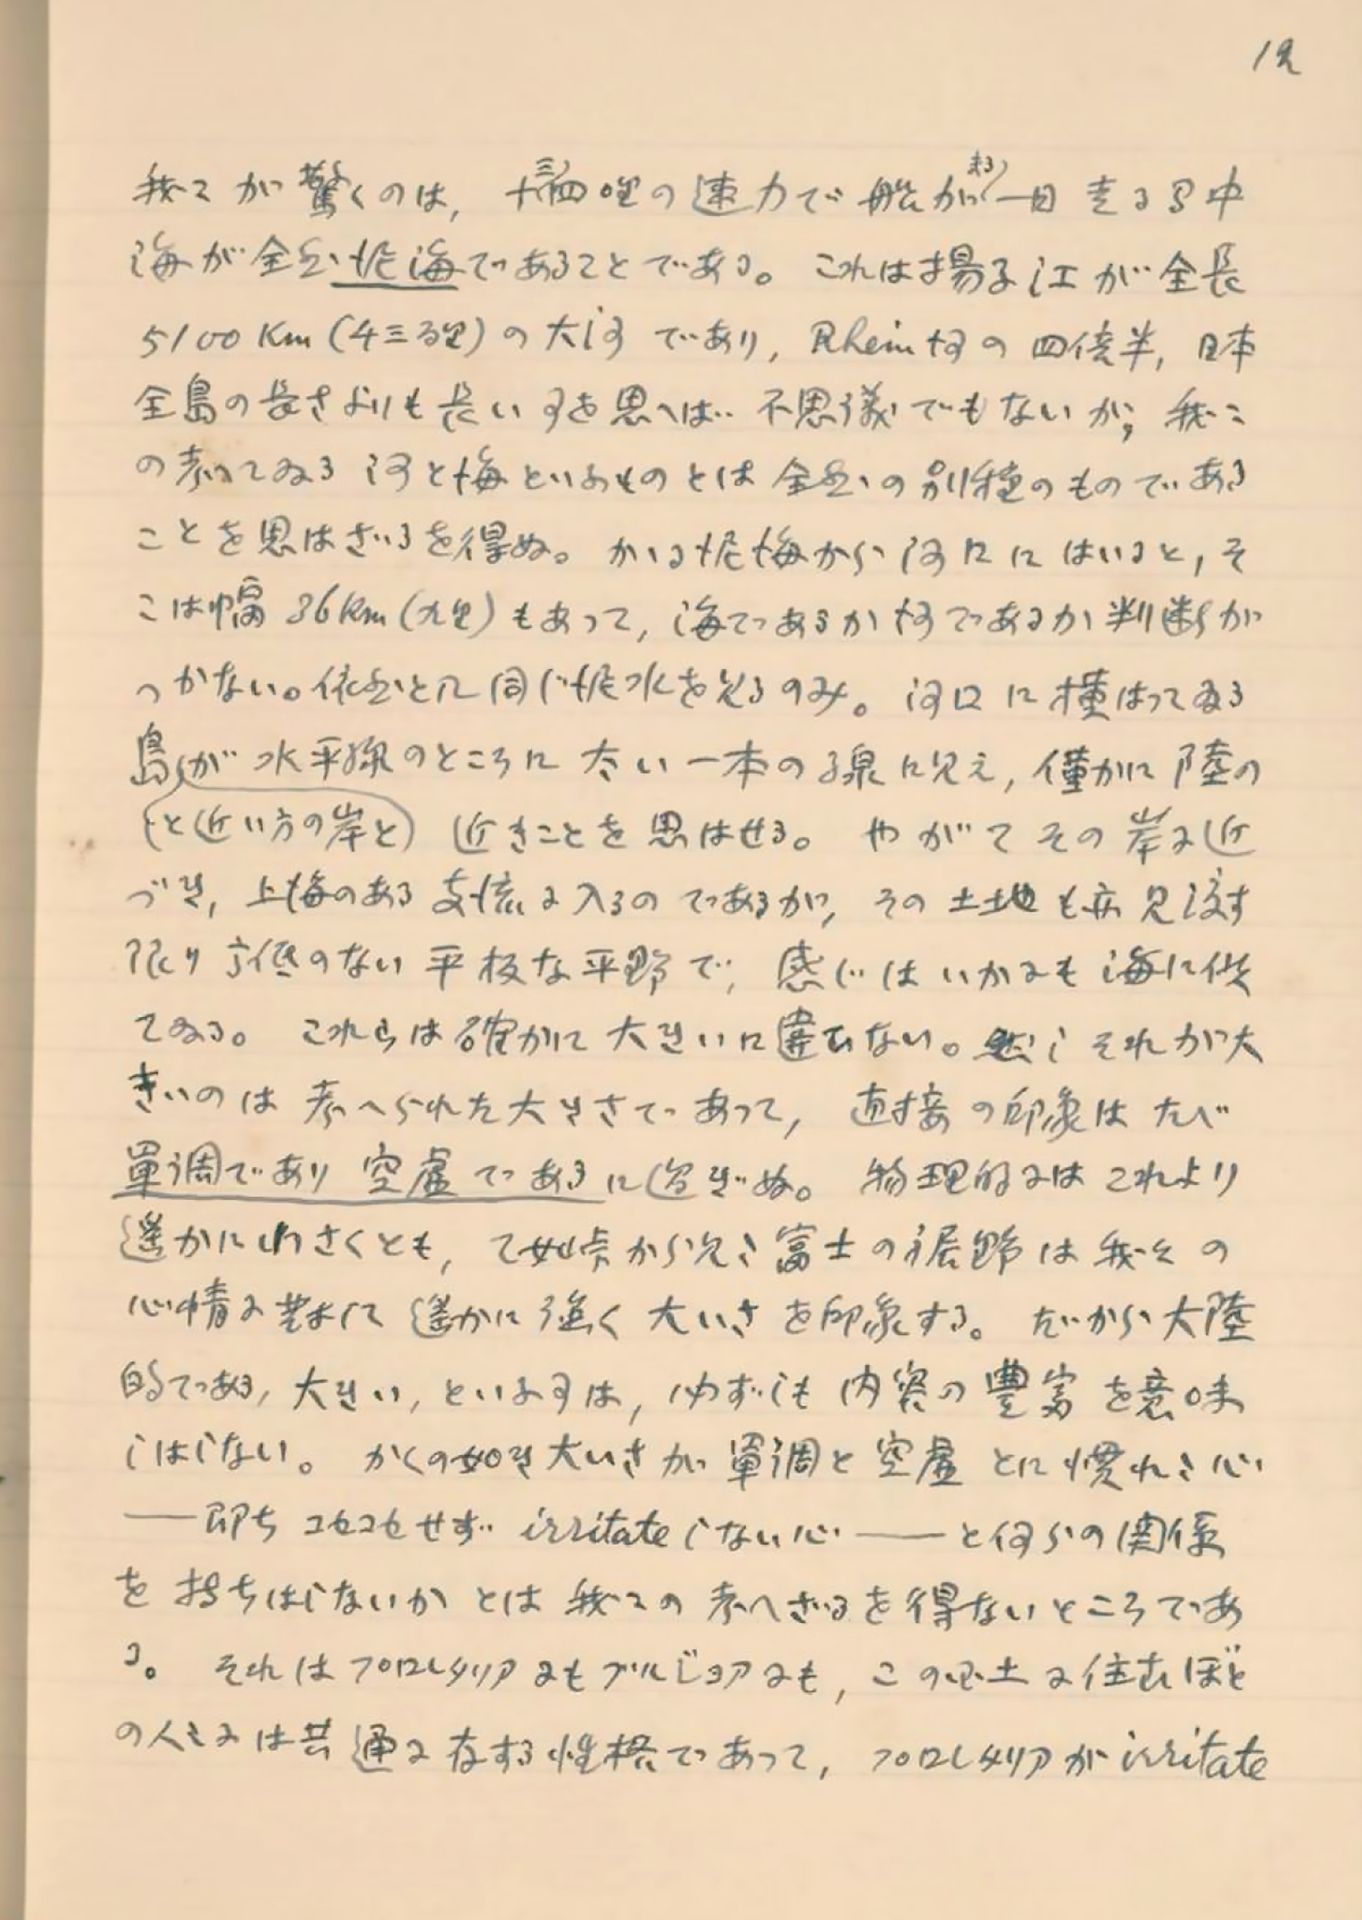 12
我々が驚くのは, 十三四哩の速力で船がまる一日走る間中
海が全然泥海であることである。これは揚子江が全長
5100 Km (千三百里) の大河であり, Rhein河の四倍半, 日本
全島の長さよりも長い事を思へば 不思議でもないが, 我々
の考へてゐる河と海といふものとは全然の別種のものである
ことを思はざるを得ぬ。かゝる泥海から河口にはいると, そ
こは幅 36 km (九里) もあって, 海であるか河であるか判断が
つかない。依然として同じ泥水を見るのみ。河口に横はってゐる
島が水平線のところに太い一本の線に見え, 僅かに陸の
(と近い方の岸と) 近きことを思はせる。やがてその岸に近
づき, 上海のある支流に入るのであるが, その土地も亦見渡す
限り高低のない平板な平野で, 感じはいかにも海に似
てゐる。これらは確かに大きいに違ひない。然しそれが大
きいのは考へられた大きさであって, 直接の印象はたゞ
單調であり空虚であるに過ぎぬ。物理的にはこれより
遥かに小さくとも, 乙女峠から見た富士の裾野は我々の
心情に於て遥かに強く大いさを印象する。だから大陸
的である, 大きい, といふ事は, 必ずしも内容の豊富を意味
しはしない。かくの如き大いさが單調と空虚とに慣れた心
——即ちコセコセせず irritate しない心——と何らの関係
を持ちはしないかとは我々の考へざるを得ないところであ
る。それはプロレタリアにもブルジョアにも, この風土に住むほど
の人々には共通に存する性格であって, プロレタリアが irritate